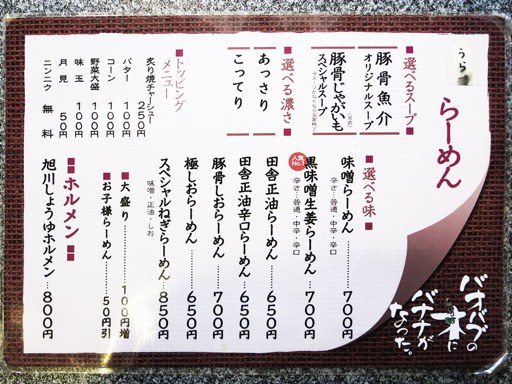 うら
らーめん
■選べるスープ■
豚骨魚介
オリジナルスープ
豚骨じゃがいも
スペシャルスープ
■選べる濃さ■
あっさり
こってり
■トッピング
メニュー
炙り焼チャーシュー 250円
バター 100円
コーン 100円
野菜大盛 100円
味玉 100円
月見 50円
ニンニク 無料
■選べる味■
味噌らーめん 700円
辛さ…普通・中辛・辛口
人気No.1
黒味噌生姜らーめん 700円
辛さ…普通・中辛・辛口
田舎正油らーめん 650円
田舎正油辛口らーめん 650円
豚骨しおらーめん 700円
極しおらーめん 650円
スペシャルねぎらーめん 850円
味噌・正油・しお
■大盛り 100円増
■お子様らーめん 50円引
■ホルメン■
旭川しょうゆホルメン 800円
バオバブの
一本に
バナナが
なった。